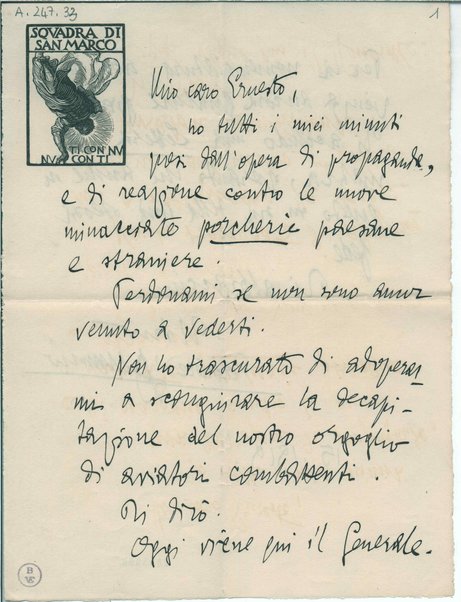 A. 247. 33
1
SQVADRA DI
SAN MARCO
TI CON NV
NV CON TI
Mio caro Ernesto,
ho tutti i miei minuti
presi dall'opera di propaganda,
e di reazione contro le nuove
minacciate porcherie paesane
e straniere.
Perdonami se non sono ancor
venuto a vederti.
Non ho trascurato di adoperar-
mi a scongiurare la decapi-
tazione del nostro orgoglio
di aviatori combattenti.
Ti dirò.
Oggi viene qui il Generale.